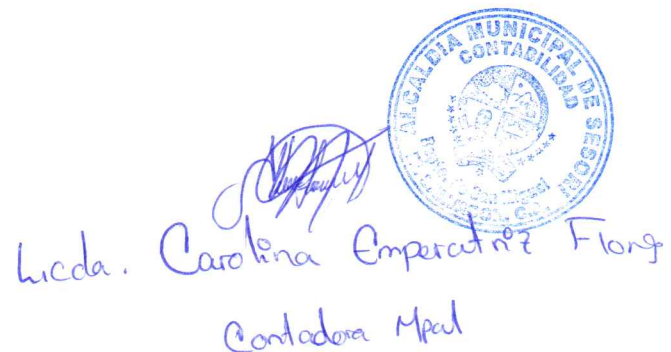 ALCALDIA MUNICIPAL DE SESORI
CONTABILIDAD
Licda. Carolina Emperatriz Flores
Contadora Mpal